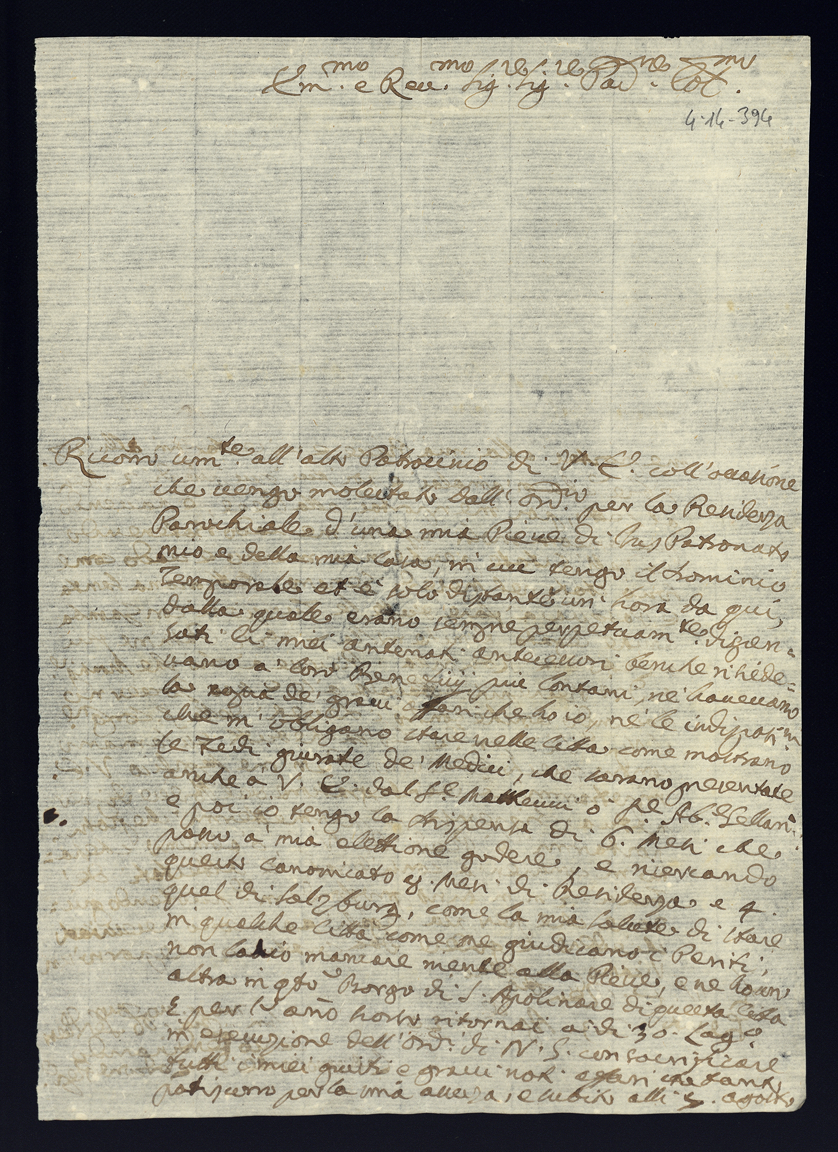 Em.mo e Reu.mo Sig.re Sig.re Pad.ne Col.mo
4-14-394
Ricorro um.te all'alto Patrocinio di V. E. coll'occasione
che uengo molestato dall'Ord.rio per la Residenza
Parochiale d'una mia Pieue di Jus Patronato
mio e della mia Casa, in cui tengo il Dominio
Temporale et è solo distante un' hora da qui,
dalla quale erano sempre perpetuam.te dispen=
sati li miei antenati antecessori benche rihede=
uano a loro Beneficij più lontani, nè haueuano
la copia de' graui affari che ho io, nè le indispos.ni
che m'obligano stare nelle Città come mostrano
le Fedi giurate de' Medici, che sarano presentate
anche a V. E. dal S.r Matteucci o S.r Ab.e
e poi io tengo la dispensa di 6. Mesi che
posso a' mia elettione godere, e ricercando
questo canonicato 8. Mesi di Residenza e 4.
quel di Salzburg, come la mia salute di stare
in qualche Città come me giudicano i Periti,
non lascio mancare niente alla Pieue, e ne ho un
altra in q.to Borgo di S. Apolinare di questa Città
E per l'año ritornai a di 30. Lug.o
in esecuzione dell'Ord.e di N. S. con sacrificare
tutti i miei e graui not. affari che tanto
patiscono per la mia assenza, e subito alli 5. Agosto